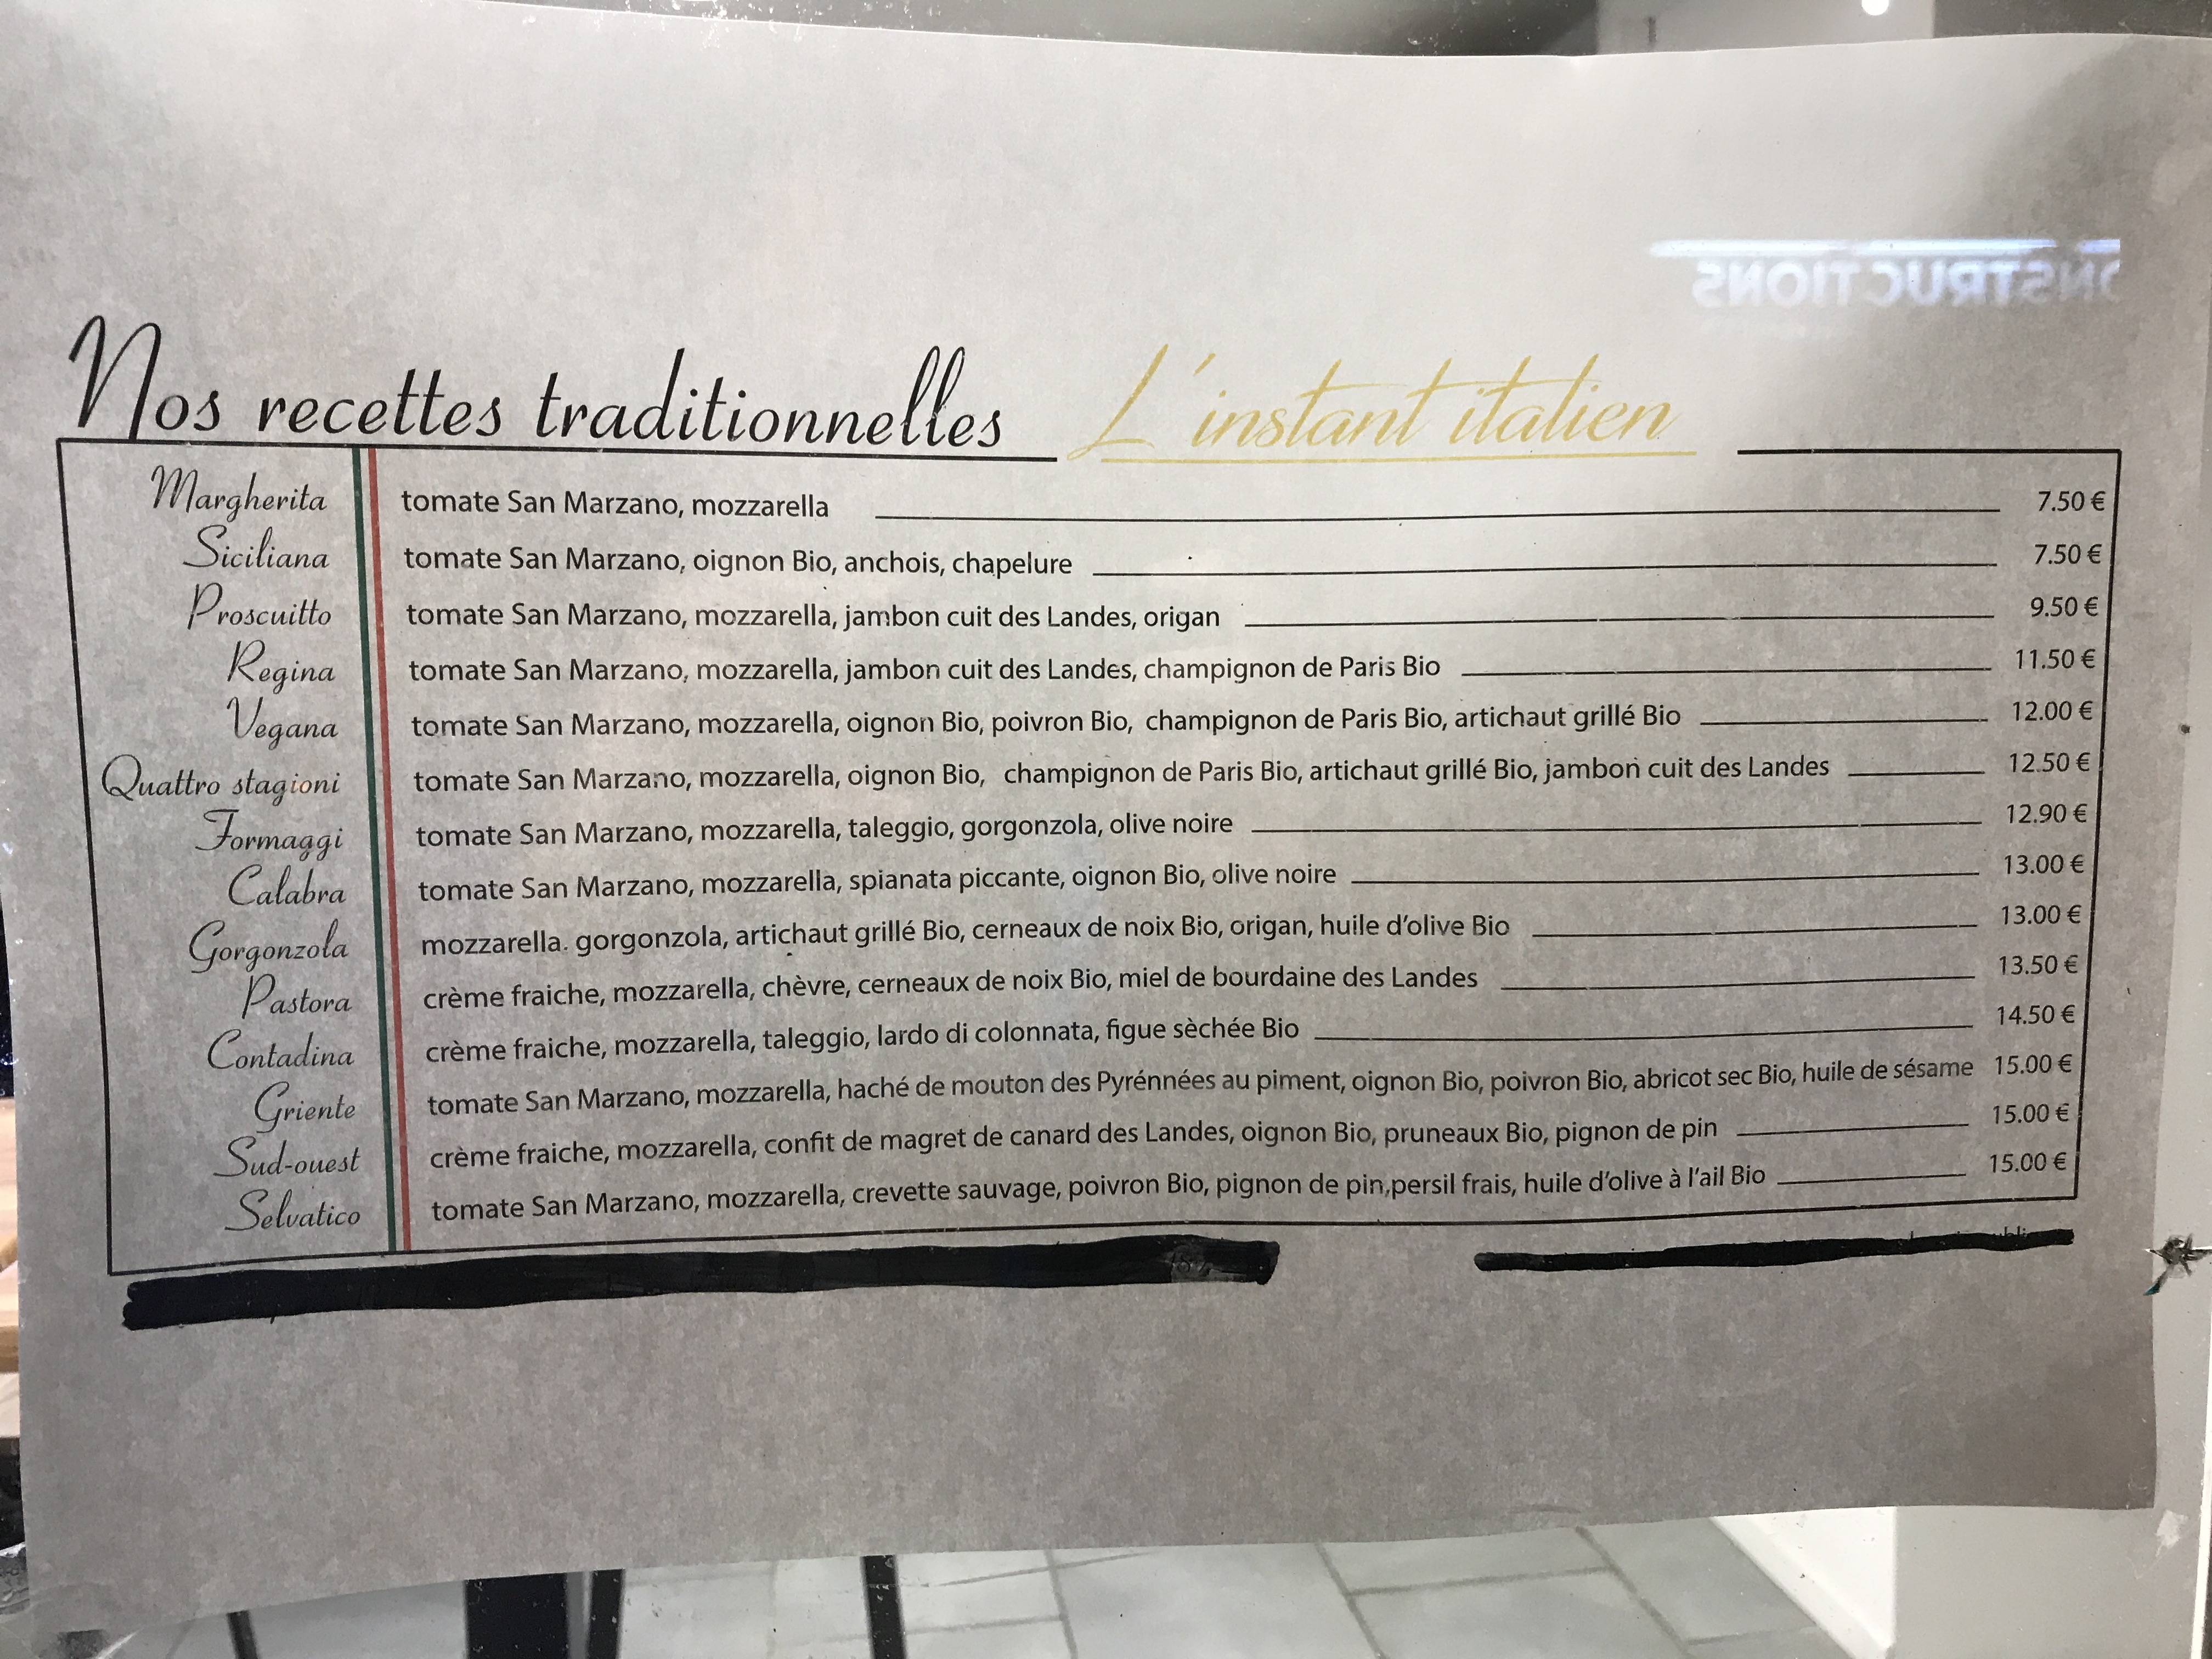 ONSTRUCTIONS
Nos recettes traditionnelles L'instant italien
Margherita tomate San Marzano, mozzarella 7.50 €
Siciliana tomate San Marzano, oignon Bio, anchois, chapelure 7.50 €
Proscuitto tomate San Marzano, mozzarella, jambon cuit des Landes, origan 9.50 €
Regina tomate San Marzano, mozzarella, jambon cuit des Landes, champignon de Paris Bio 11.50 €
Vegana tomate San Marzano, mozzarella, oignon Bio, poivron Bio, champignon de Paris Bio, artichaut grillé Bio 12.00 €
Quattro stagioni tomate San Marzano, mozzarella, oignon Bio, champignon de Paris Bio, artichaut grillé Bio, jambon cuit des Landes 12.50 €
Formaggi tomate San Marzano, mozzarella, taleggio, gorgonzola, olive noire 12.90 €
Calabra tomate San Marzano, mozzarella, spianata piccante, oignon Bio, olive noire 13.00 €
Gorgonzola mozzarella. gorgonzola, artichaut grillé Bio, cerneaux de noix Bio, origan, huile d'olive Bio 13.00 €
Pastora crème fraiche, mozzarella, chèvre, cerneaux de noix Bio, miel de bourdaine des Landes 13.50 €
Contadina crème fraiche, mozzarella, taleggio, lardo di colonnata, figue sèchée Bio 14.50 €
Griente tomate San Marzano, mozzarella, haché de mouton des Pyrénnées au piment, oignon Bio, poivron Bio, abricot sec Bio, huile de sésame 15.00 €
Sud-ouest crème fraiche, mozzarella, confit de magret de canard des Landes, oignon Bio, pruneaux Bio, pignon de pin 15.00 €
Selvatico tomate San Marzano, mozzarella, crevette sauvage, poivron Bio, pignon de pin,persil frais, huile d'olive à l'ail Bio 15.00 €